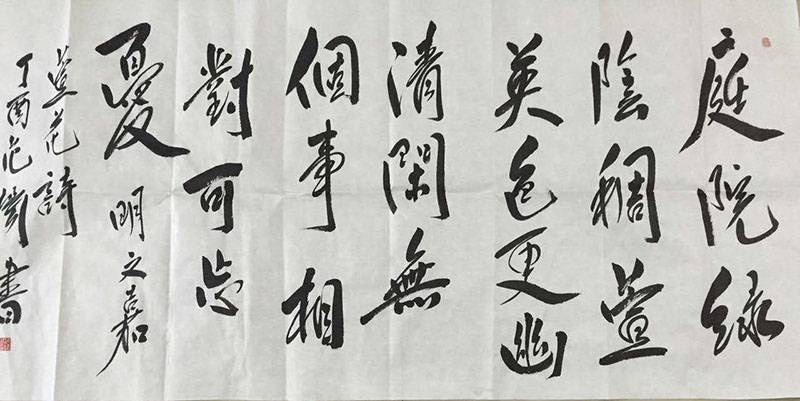 庭院綠
陰稠萱
英色更幽
清閑無
個事相
對可忘
憂 明文嘉
萱花詩
丁酉范書